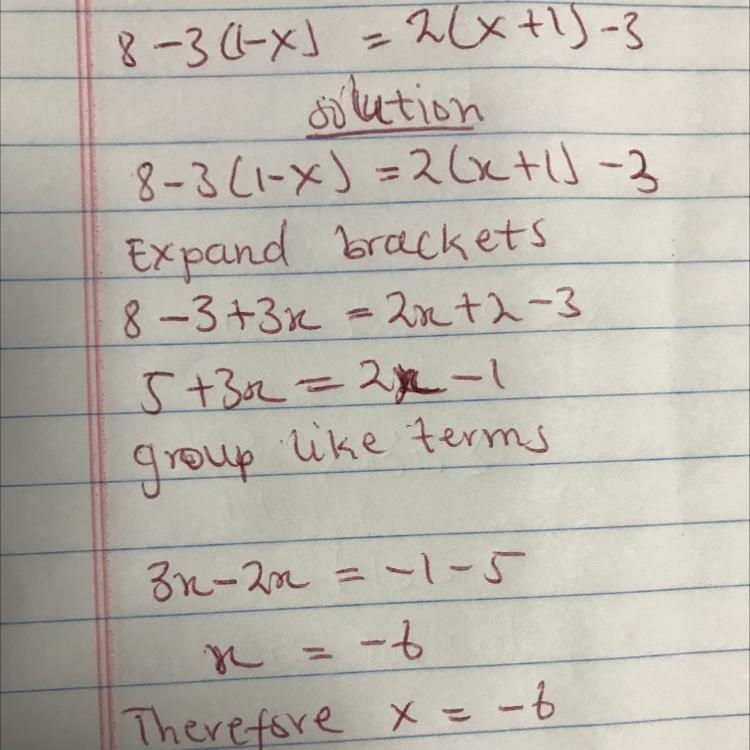 8-3(1-x) = 2(x+1)-3
solution
8-3(1-x) = 2(x+1) -3
Expand brackets
8-3+3x = 2x+2-3
5+3x = 2x-1
group like terms
3x-2x = -1-5
x = -6
Therefore x = -6